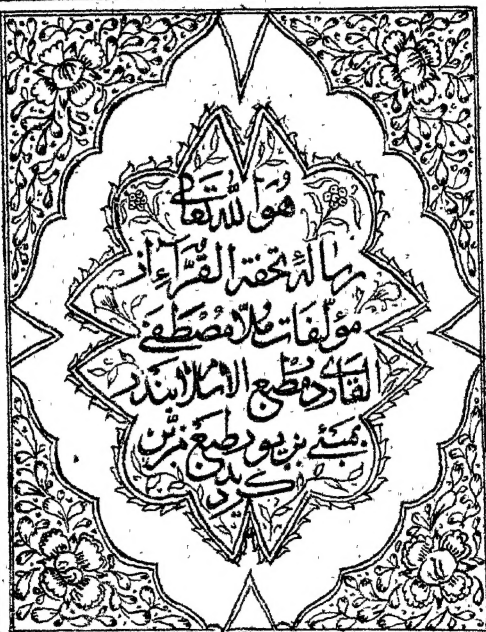 هُوَ اللّٰه تَعَالٰی
رسالهٔ تحفة القُرّآءِ از
مؤلّفات مُلّا مُصْطَفٰی
القاری در مطبع الاسلام بندر
بمبئی بزیور طبع مزیّن
گردید